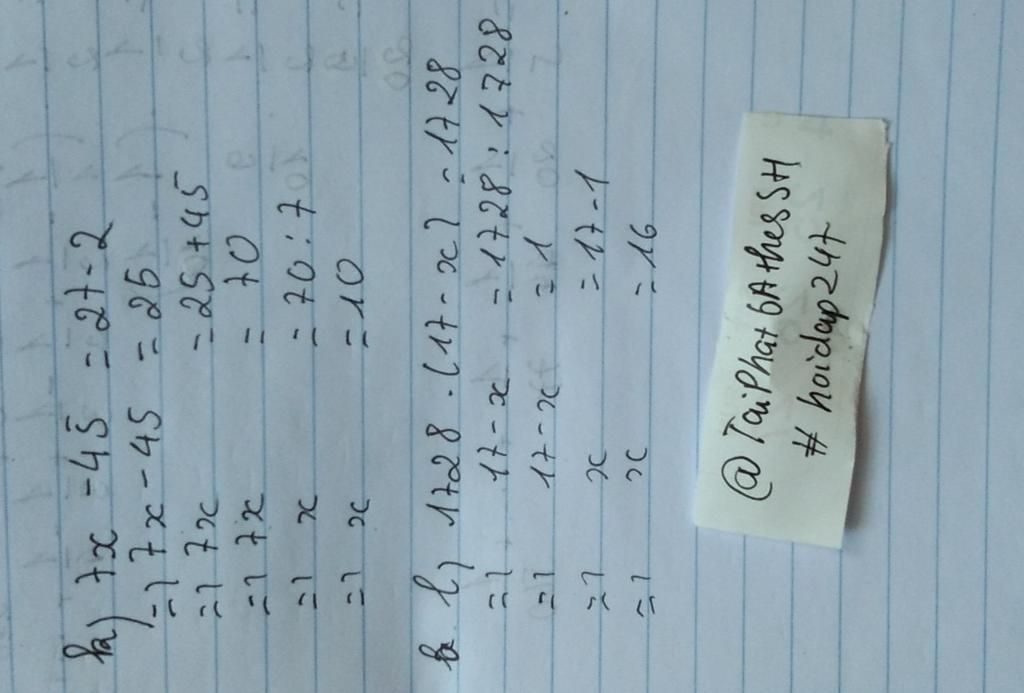 a) 7x - 45 = 27 - 2
=> 7x - 45 = 25
=> 7x = 25 + 45
=> 7x = 70
=> x = 70 : 7
=> x = 10
b) 1728 . (17 - x) = 1728
=> 17 - x = 1728 : 1728
=> 17 - x = 1
=> x = 17 - 1
=> x = 16
@TaiPhat6AthesSH
# hoidap247